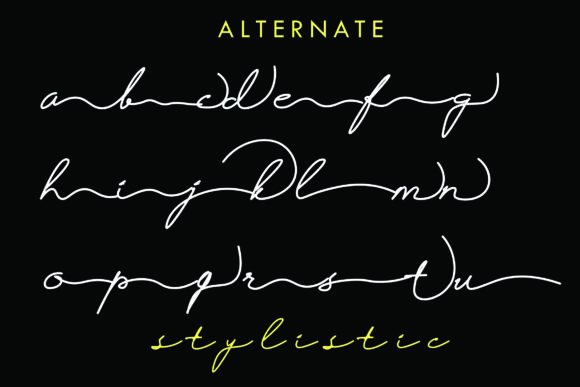 ALTERNATE
a b c d e f g
h i j k l m n
o p q r s t u
stylistic